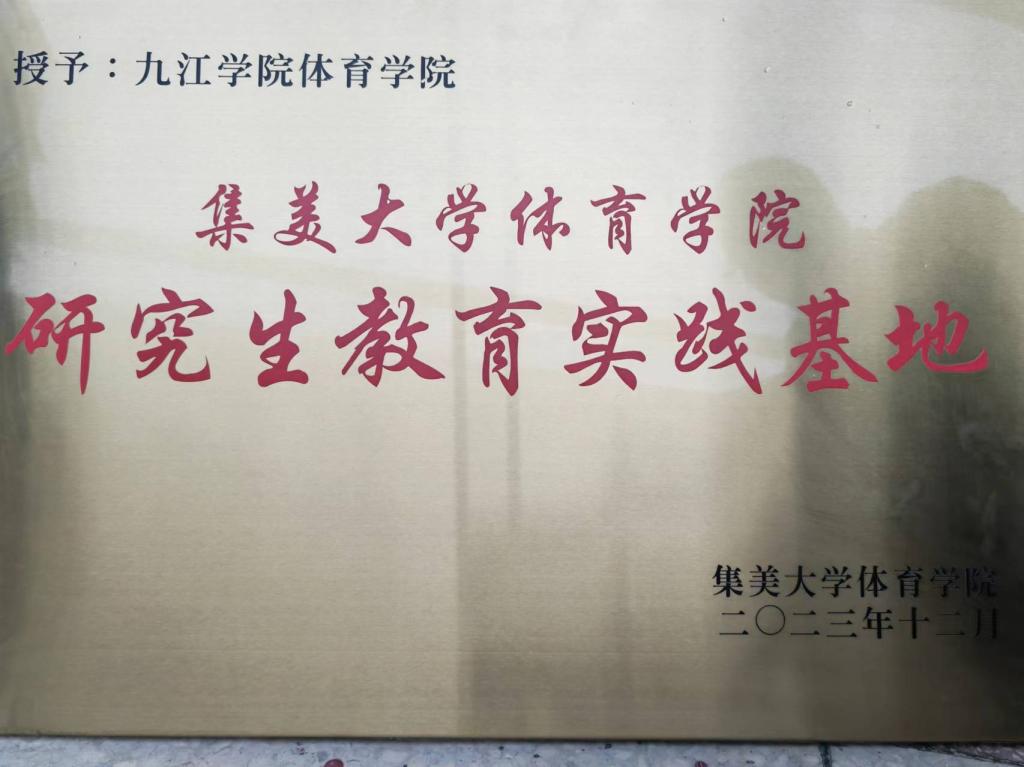 授予：九江学院体育学院
集美大学体育学院
研究生教育实践基地
集美大学体育学院
二〇二三年十二月